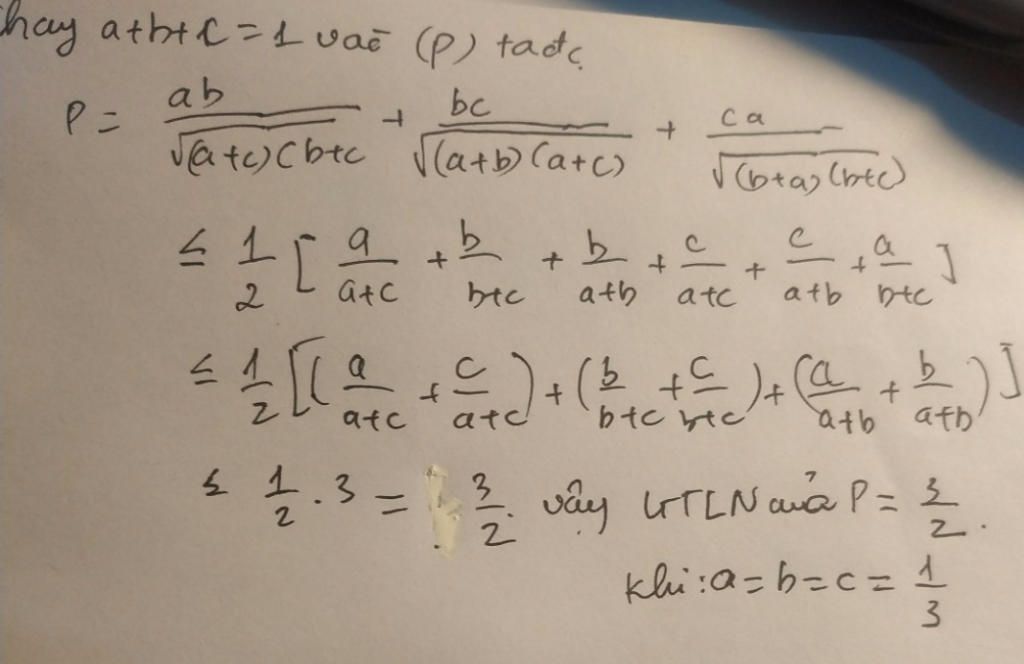 hay a+b+c=1 vaō (P) ta đc.
P = ab/√(a+c)(b+c + bc/√(a+b)(a+c) + ca/√(b+a)(b+c)
≤ 1/2 [ a/a+c + b/b+c + b/a+b + c/a+c + c/a+b + a/b+c ]
≤ 1/2 [( a/a+c + c/a+c ) + ( b/b+c + c/b+c ) + ( a/a+b + b/a+b )]
≤ 1/2 . 3 = 3/2 . vậy GTLN của P = 3/2 .
khi : a = b = c = 1/3